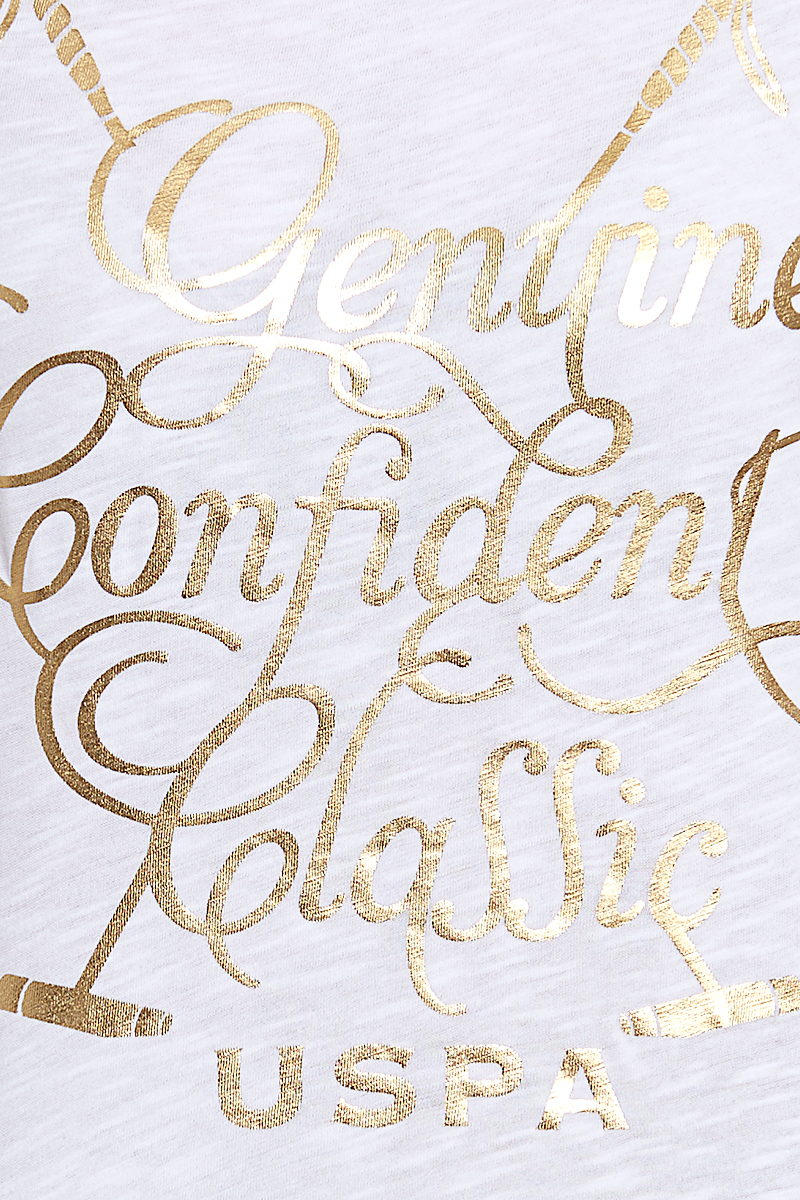 Genuine
Confident
Classic
USPA